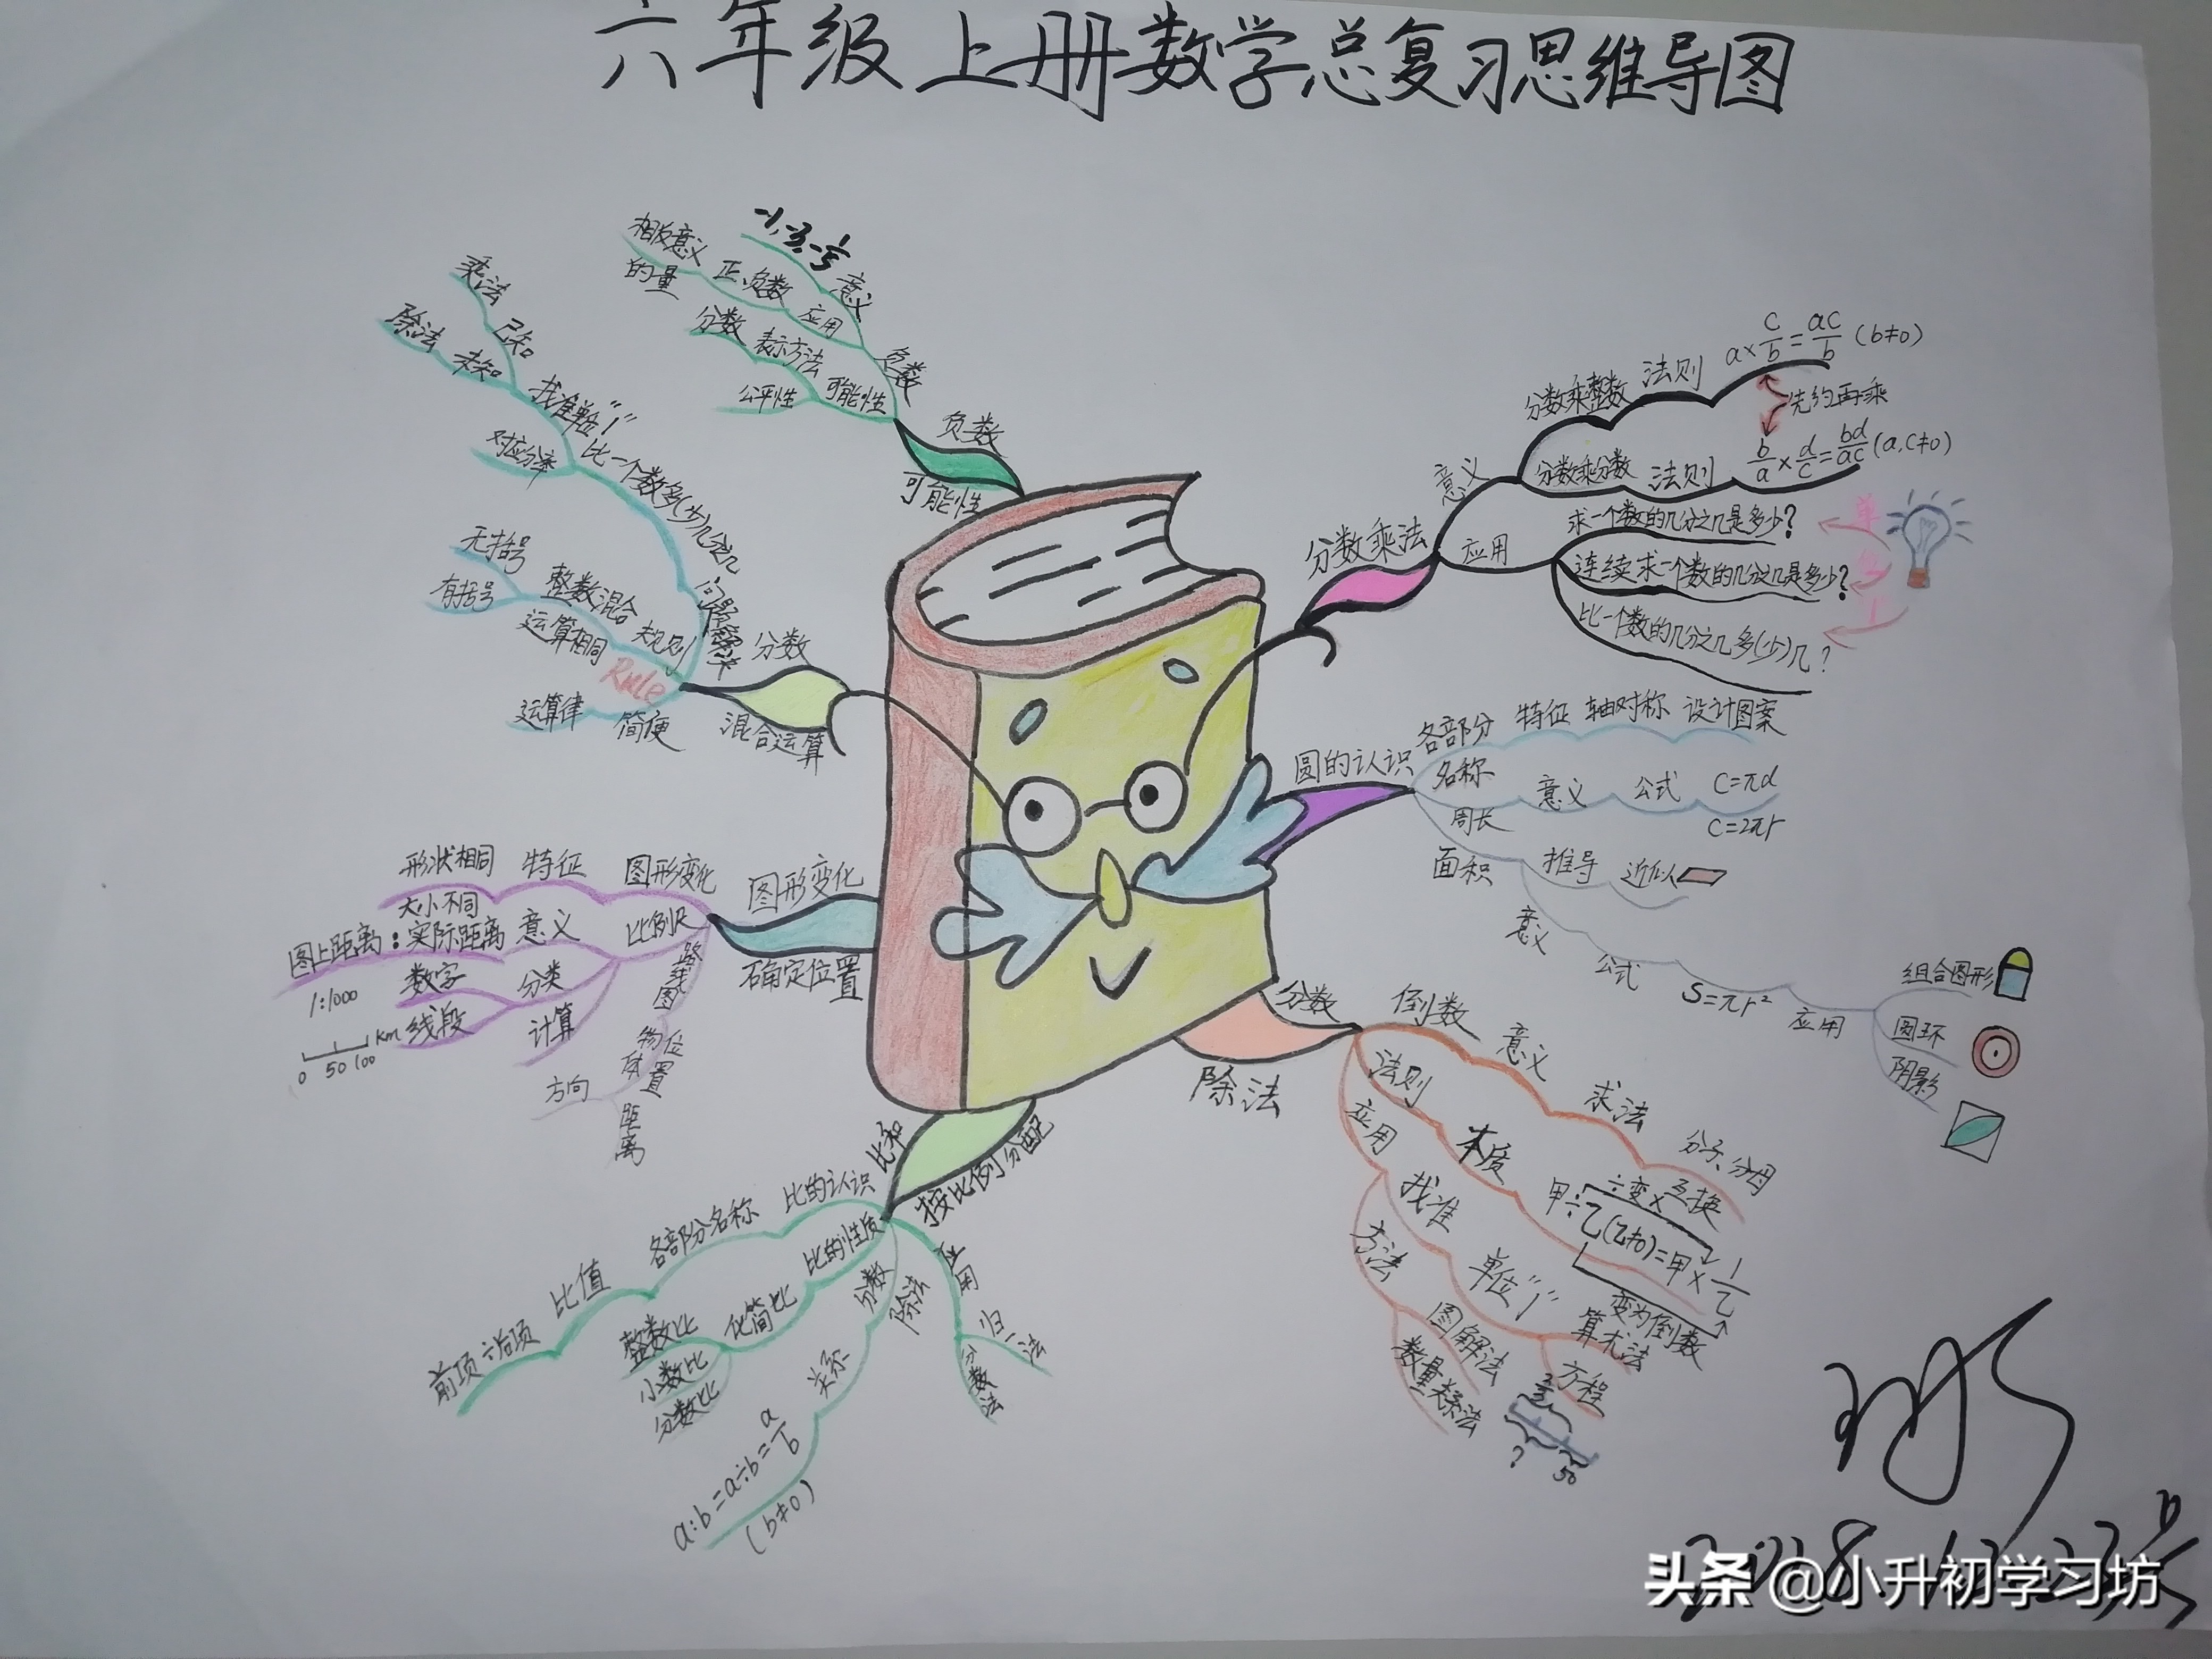 六年级上册数学总复习思维导图
分数乘法
意义
分数乘整数 法则 a×c/b=ac/b (b≠0)
先约再乘
分数乘分数 法则 b/a×d/c=bd/ac (a,c≠0)
应用
求一个数的几分之几是多少?
连续求一个数的几分之几是多少?
比一个数的几分之几多(少)几?
单
位
"1"
圆的认识
各部分
名称
特征 轴对称 设计图案
周长
意义 公式 C=πd
C=2πr
面积 推导 近似
意义 公式 S=πr² 应用
组合图形
圆环
阴影
分数
除法
倒数 意义 求法 分子、分母
互换
法则 本质
÷变×
甲÷乙(乙≠0)=甲×1/乙
变为倒数
应用
找准 单位"1"
算术法
方程
方法
图解法
数量关系法
?
50
比和
按比例分配
比的认识 各部分名称 比值 前项÷后项
比的性质 化简比
整数比
小数比
分数比
分数
除法
关系
a:b=a÷b=a/b
(b≠0)
应用
归一法
分数法
图形变化
确定位置
图形变化 特征 形状相同
大小不同
比例尺 意义 图上距离:实际距离
分类 数字 1:1000
线段 km
0 50 100
计算
路线图
物体
位置
方向
距离
分数
混合运算
问题解决
比一个数多(少)几分之几
找准单位"1"
已知 乘法
未知 除法
对应分率
规则
Rule
整数混合
运算相同
无括号
有括号
简便 运算律
负数
可能性
负数
意义 -1,-3,-1/5
应用 正、负数 相反意义
的量
可能性
表示方法 分数
公平性
头条 @小升初学习坊